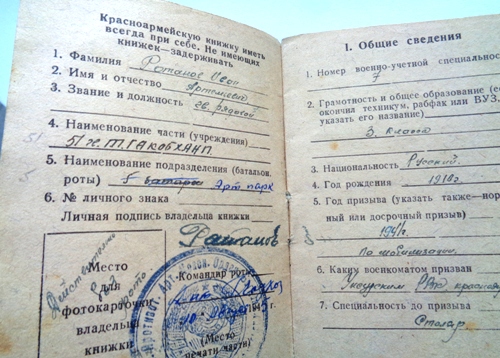 Красноармейскую книжку иметь
всегда при себе. Не имеющих
книжек—задерживать
1. Фамилия Ратанов Иван
2. Имя и отчество Артемьевич
3. Звание и должность рядовой
4. Наименование части (учреждения)
5. Наименование подразделения (батальон,
роты) Арт парк
6. № личного знака
Личная подпись владельца книжки Ратанов
Действительно
Место
для
фотокарточки
владельца
книжки
Командир роты
Место
печати части
1. Общие сведения
1. Номер военно-учетной специальнос
7
2. Грамотность и общее образование (ес
окончил техникум, рабфак или ВУЗ,
указать его название)
3 класса
3. Национальность Русский
4. Год рождения 1910г.
5. Год призыва (указать также—нор
ный или досрочный призыв)
1941г.
По мобилизации
6. Каким военкоматом призван
РВК
7. Специальность до призыва
Столяр